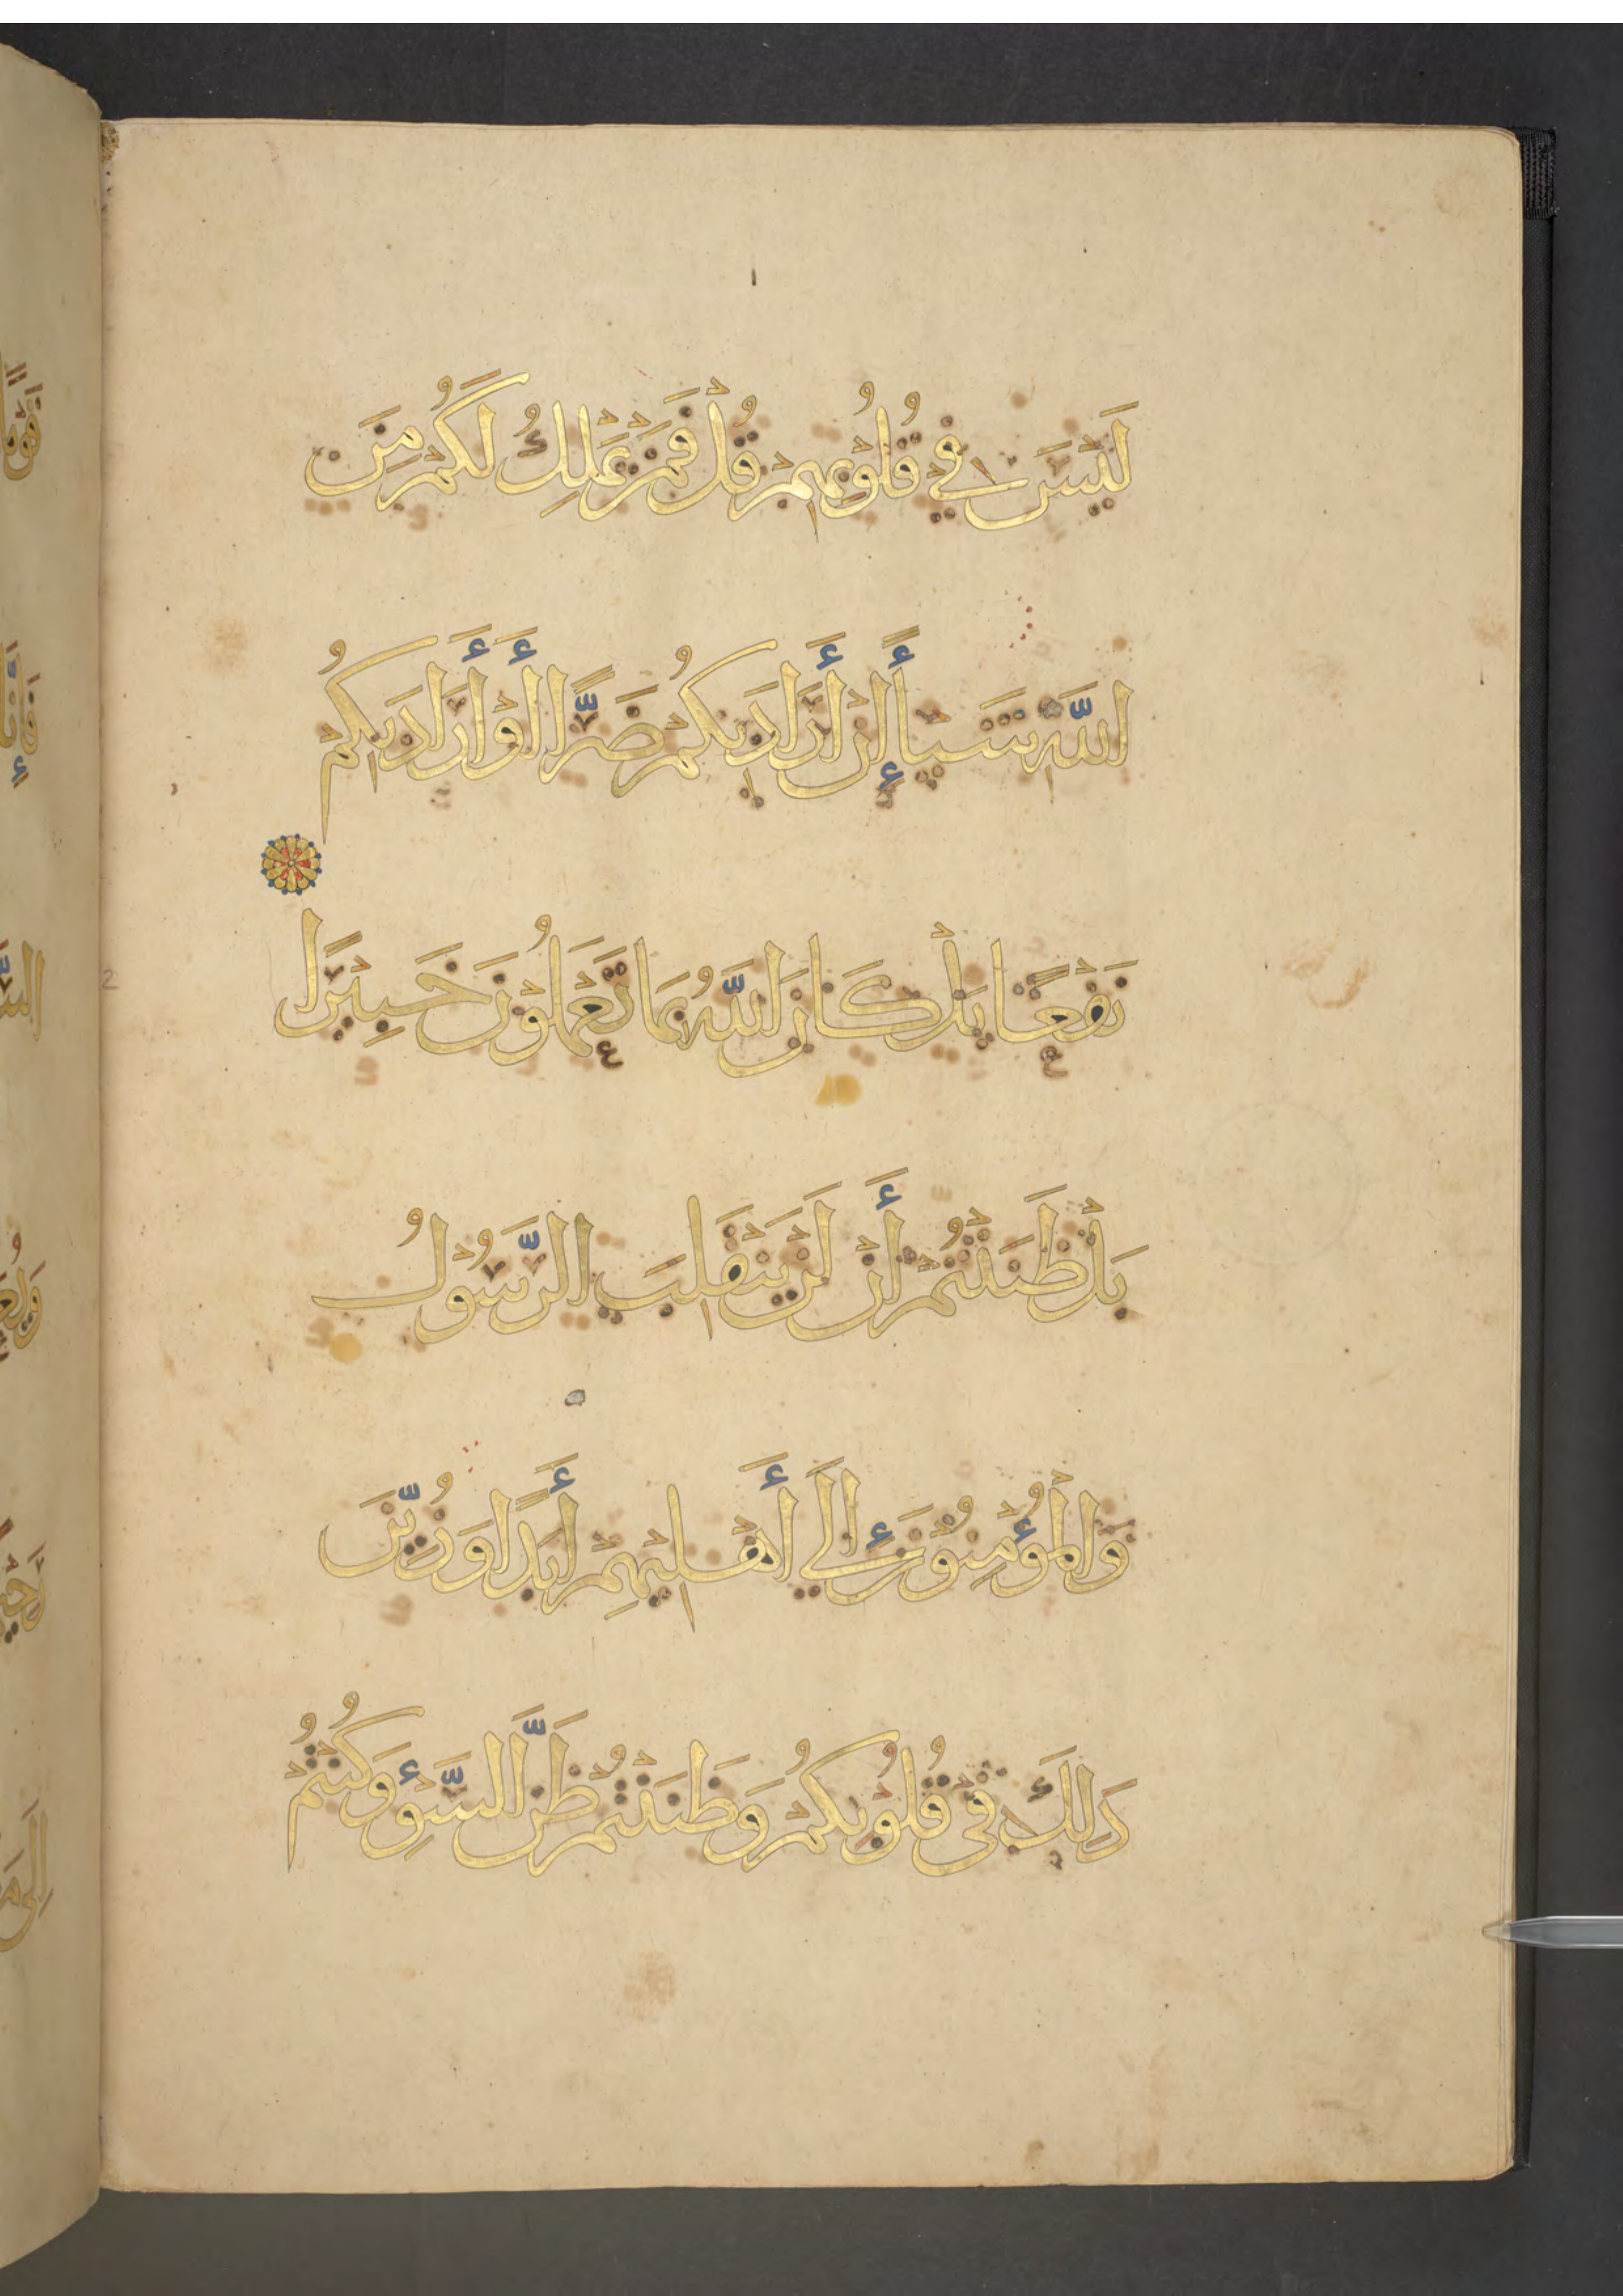 لَيْسَ فِي قُلُوْبِهِمْ قُلْ فَمَنْ يَمْلِكُ لَكُمْ مِنَ
اللَّهِ شَيْـًٔا إِنْ أَرَادَ بِكُمْ ضَرًّا أَوْ أَرَادَ بِكُمْ
نَفْعًا بَلْ كَانَ اللَّهُ بِمَا تَعْمَلُوْنَ خَبِيْرًا
بَلْ ظَنَنْتُمْ أَنْ لَنْ يَنْقَلِبَ الرَّسُوْلُ
وَالْمُؤْمِنُوْنَ إِلَي أَهْلِيْهِمْ أَبَدًا وَزُيِّنَ
ذَلِكَ فِي قُلُوْبِكُمْ وَظَنَنْتُمْ ظَنَّ السَّوْءِ وَكُنْتُمْ
2